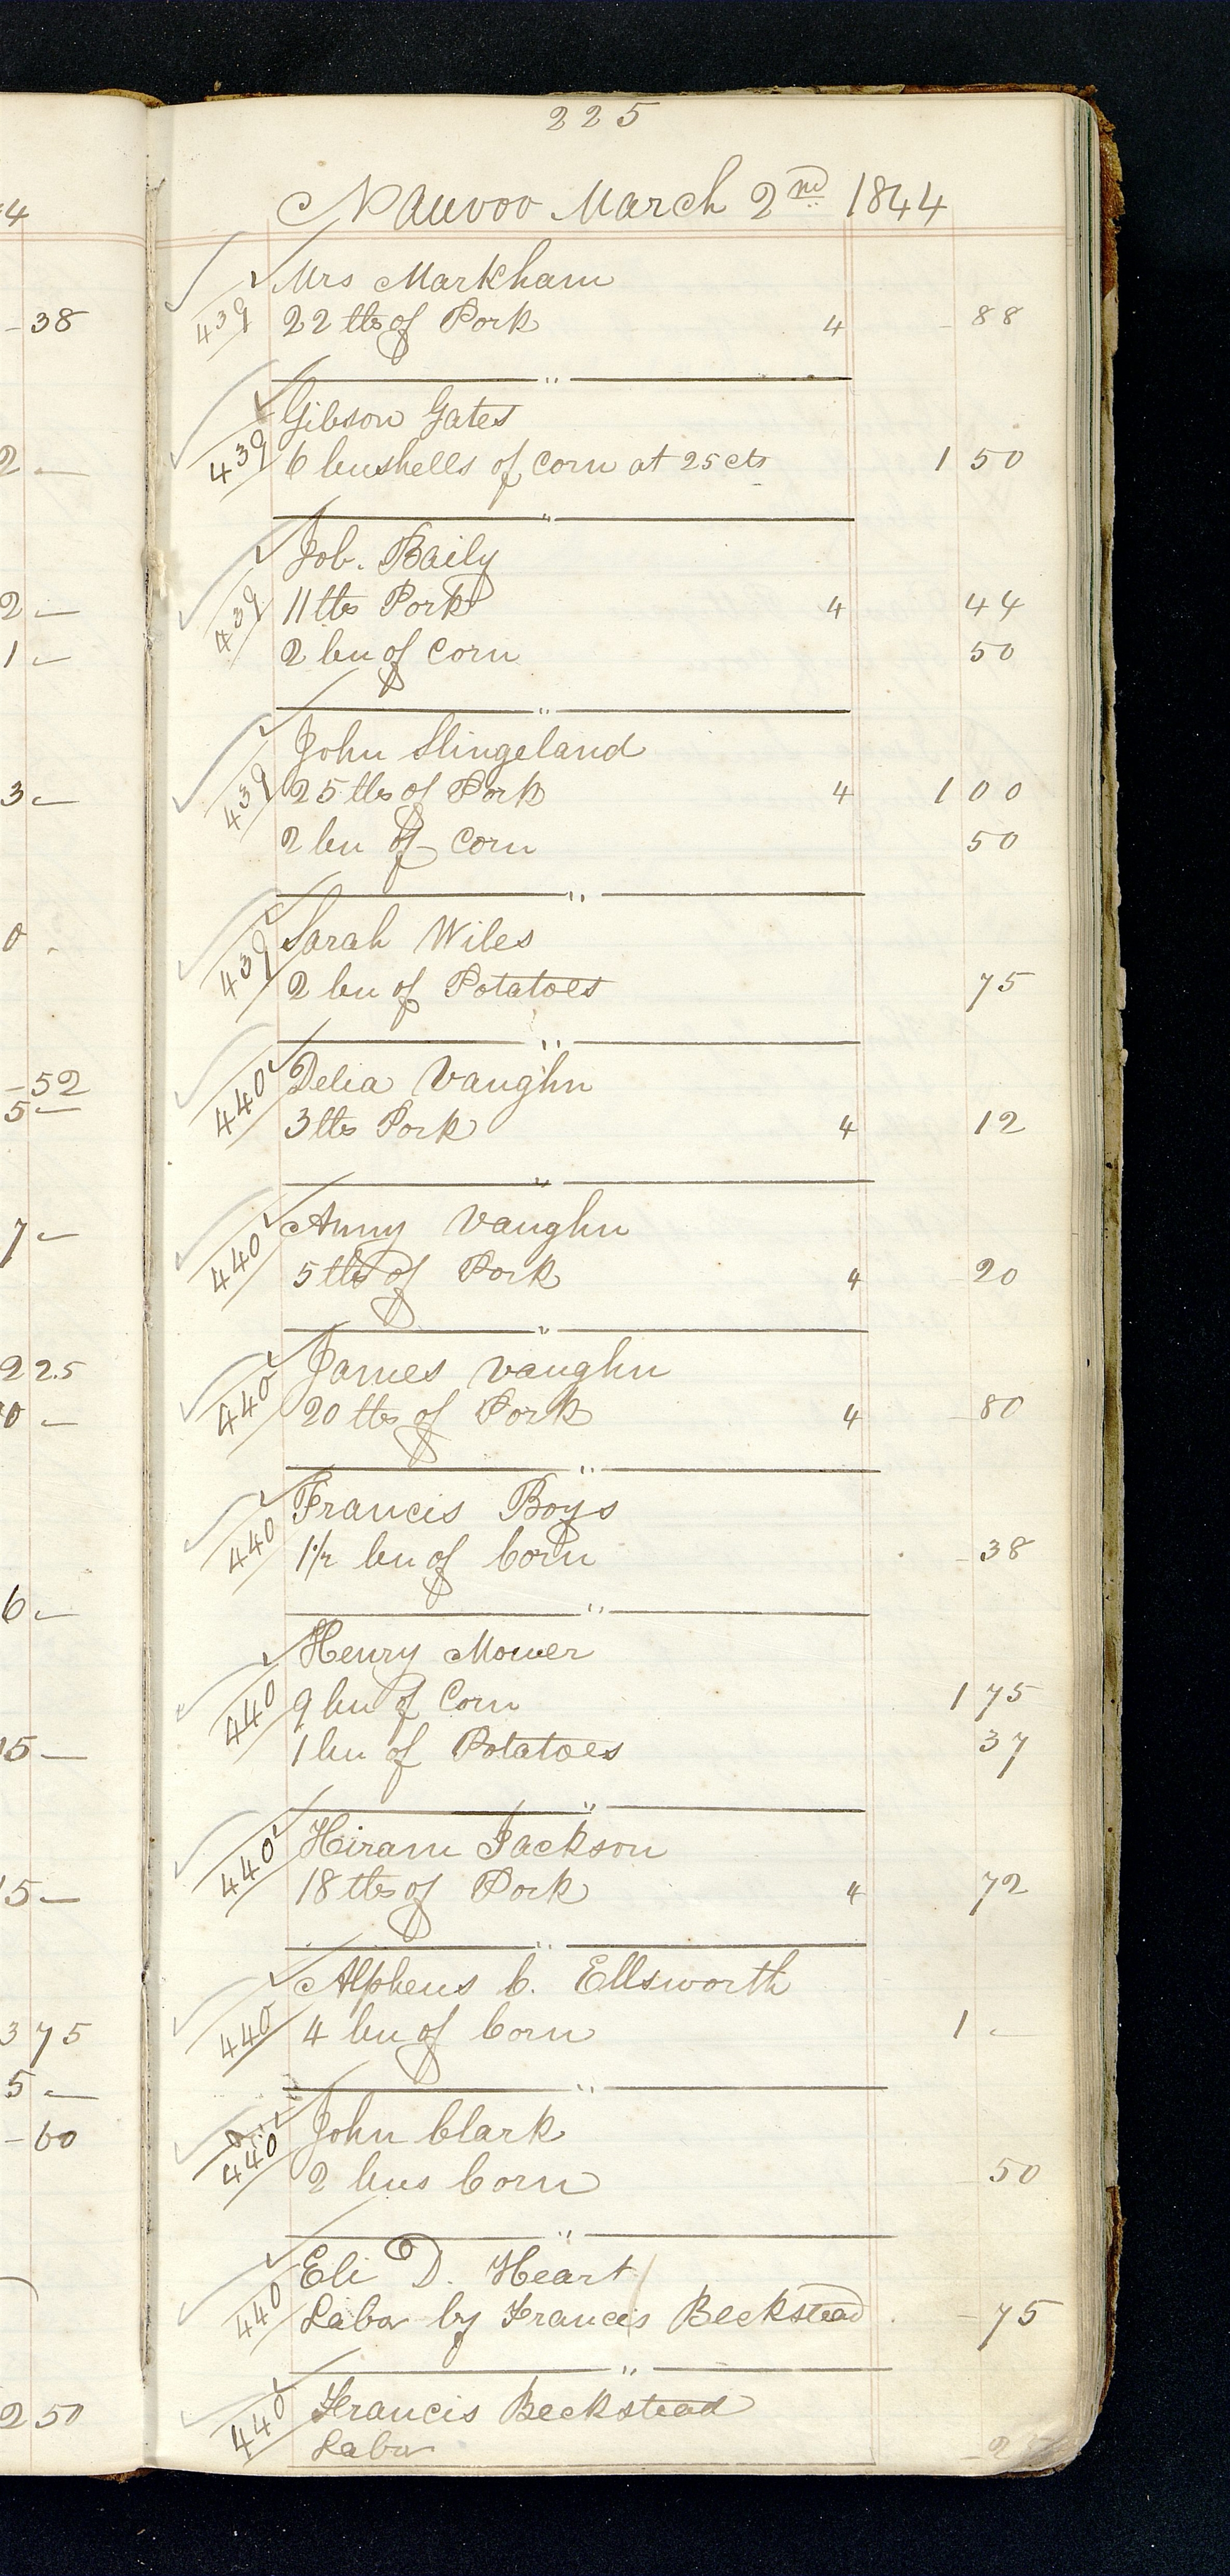 225
Nauvoo March 2nd 1844
Mrs Markham
439 22 lbs of Pork 4 - 88
Gibson Gates
439 6 bushells of corn at 25 cts 1 50
Job. Baily
439 11 lbs Pork 4 44
2 bu of Corn 50
John Slingeland
439 25 lbs of Pork 4 1 00
2 bu of Corn 50
Sarah Wiles
439 2 bu of Potatoes 75
Delia Vaughn
440 3 lbs Pork 4 12
Anny Vaughn
440 5 lbs of Pork 4 20
James Vaughn
440 20 lbs of Pork 4 - 80
Francis Boys
440 1 1/2 bu of Corn - 38
Henry Mower
440 9 bu of Corn 1 75
1 bu of Potatoes 37
Hiram Jackson
440 18 lbs of Pork 4 72
Alpheus C. Ellsworth
440 4 bu of Corn 1 -
John Clark
440 2 bus Corn - 50
Eli D. Heart
440 Labor by Francis Beckstead - 75
Francis Beckstead
440 Labor
4
- 38
2 -
2 -
1 -
3 -
0
- 52
5 -
7 -
2 25
0 -
6 -
15 -
15 -
3 75
5 -
- 60
2 50